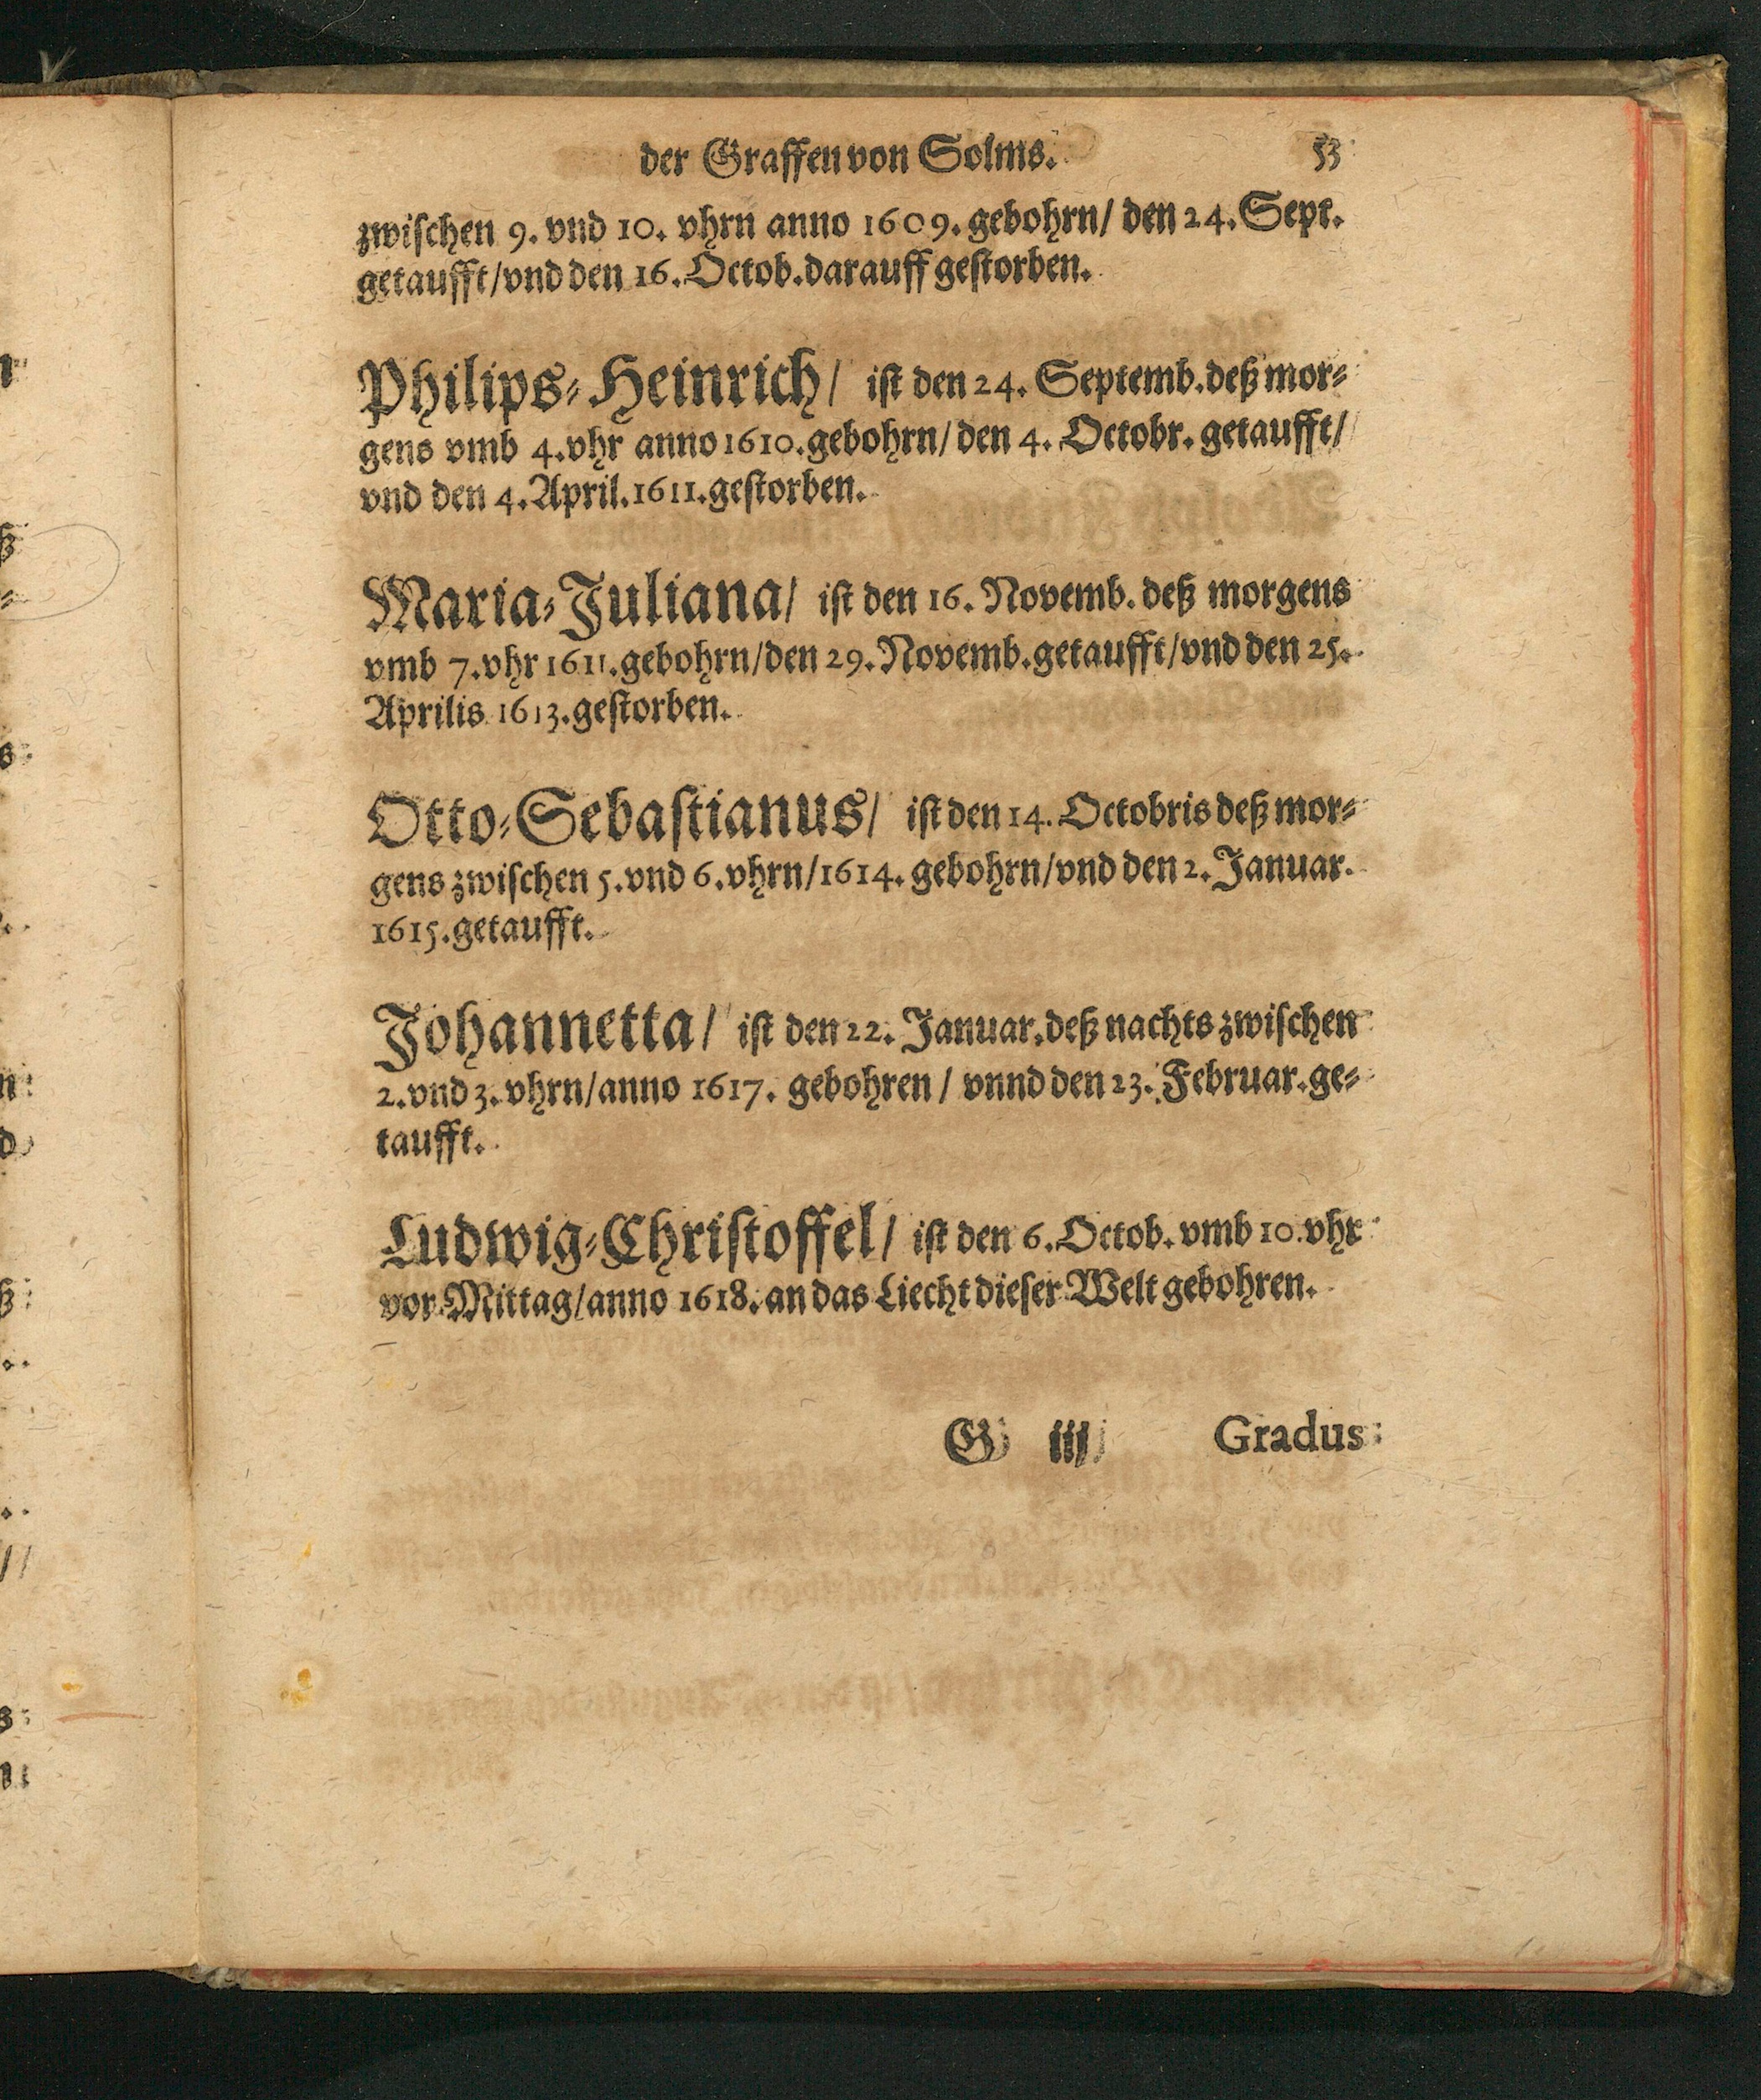 der Graffen von Solms. 53
zwischen 9. vnd 10. vhrn anno 1609. gebohrn/ den 24. Sept.
getaufft/ vnd den 16. Octob. darauff gestorben.
Philips-Heinrich/ ist den 24. Septemb. deß mor-
gens vmb 4. vhr anno 1610. gebohrn/ den 4. Octobr. getaufft/
vnd den 4. April. 1611. gestorben.
Maria-Juliana/ ist den 16. Novemb. deß morgens
vmb 7. vhr 1611. gebohrn/ den 29. Novemb. getaufft/ vnd den 25.
Aprilis 1613. gestorben.
Otto-Sebastianus/ ist den 14. Octobris deß mor-
gens zwischen 5. vnd 6. vhrn/ 1614. gebohrn/ vnd den 2. Januar.
1615. getaufft.
Johannetta/ ist den 22. Januar. deß nachts zwischen
2. vnd 3. vhrn/ anno 1617. gebohren/ vnnd den 23. Februar. ge-
taufft.
Ludwig-Christoffel/ ist den 6. Octob. vmb 10. vhr
vor Mittag/ anno 1618. an das Liecht dieser Welt gebohren.
G iij Gradus